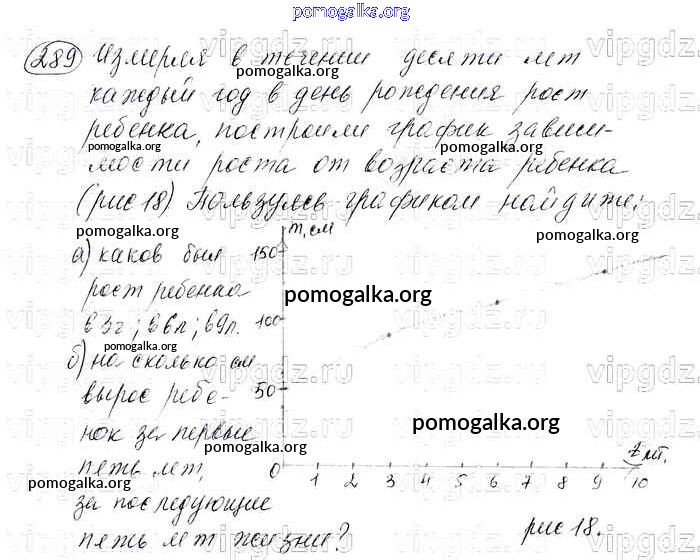 pomogalka.org
289 Измеряя в течении десяти лет
каждый год в день рождения рост
ребёнка, построили график зависи-
мости роста от возраста ребенка
(рис 18) Пользуясь графиком найдите:
а) каков был
рост ребенка
в 3г; в 6л; в 9л.
б) на сколько см
вырос ребе-
нок за первые
пять лет,
за последующие
пять лет жизни?
m, см
150
100
50
0 1 2 3 4 5 6 7 8 9 10
t лт.
рис 18.
pomogalka.org
pomogalka.org
pomogalka.org
pomogalka.org
pomogalka.org
pomogalka.org
pomogalka.org
pomogalka.org
pomogalka.org
pomogalka.org
pomogalka.org
vipgdz.ru